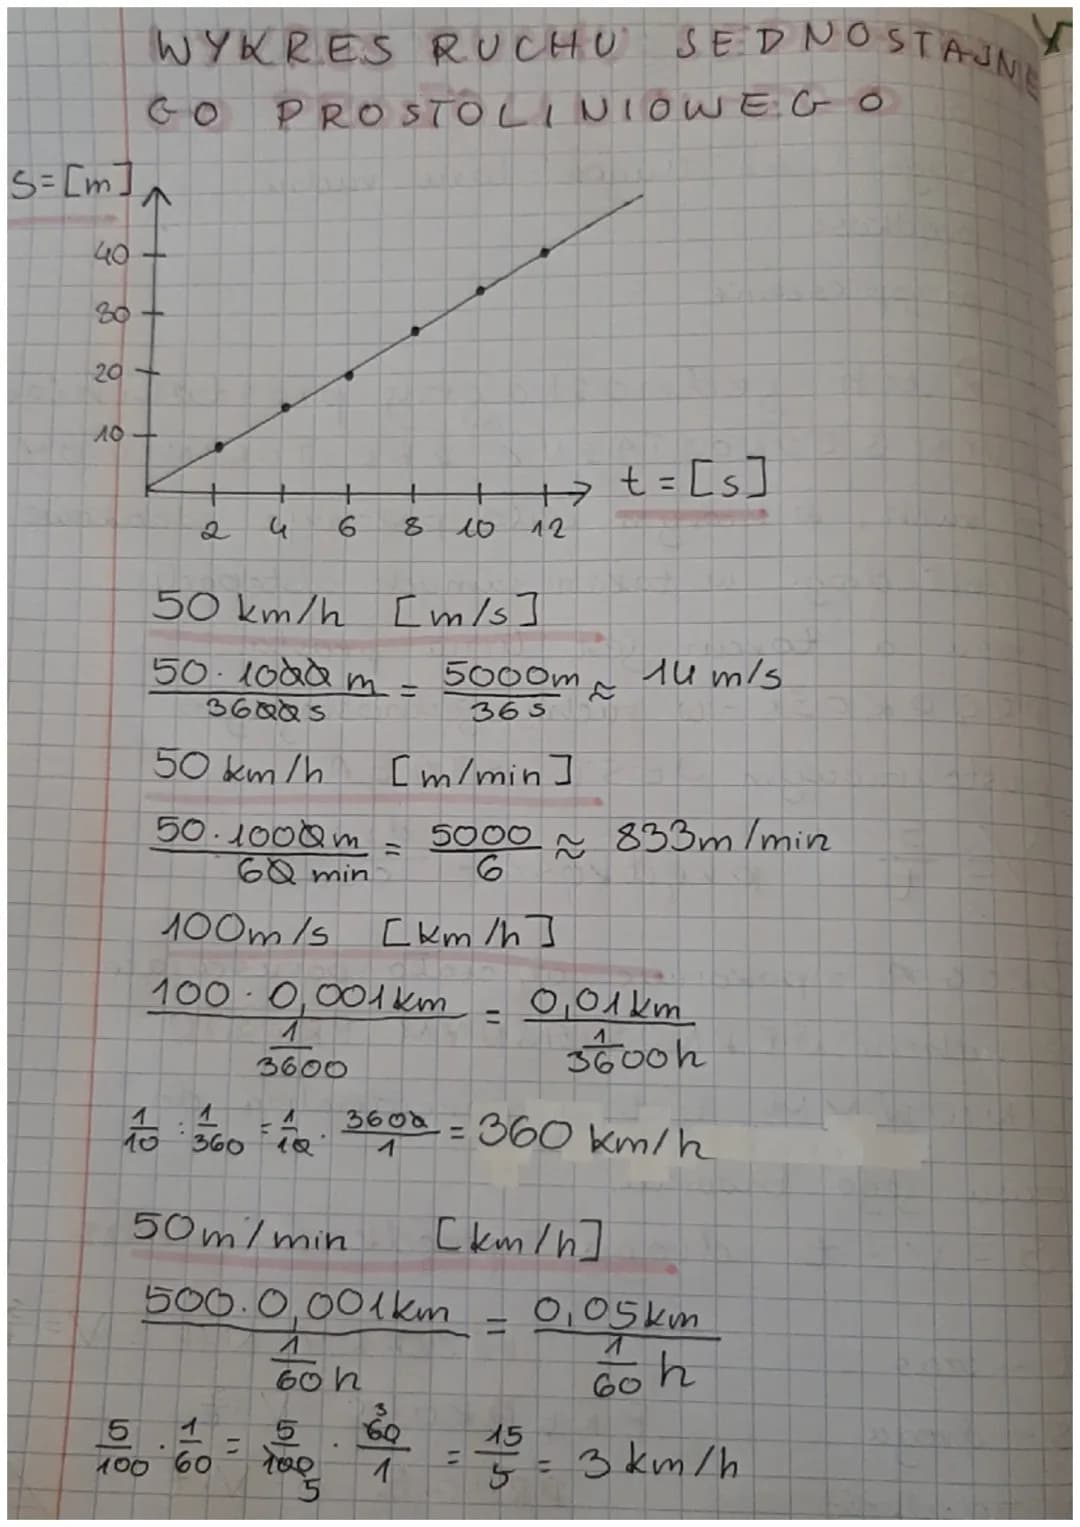 WYKRES RUCHU JEDNOSTAJNE
GO PROSTOLINIOWEGO
S=[m]
40
30
20
10
t=[s]
2 4 6 8 10 12
50 km/h [m/s]
50·1000 m / 3600 s = 5000m / 36 s ≈ 14 m/s
50 km/h [m/min]
50·1000m / 60 min = 5000 / 6 ≈ 833m/min
100m/s [km/h]
100·0,001km / 1/3600 = 0,01km / 1/3600h
1/10 : 1/360 = 1/10 · 3600/1 = 360 km/h
50m/min [km/h]
500·0,001km / 1/60 h = 0,05km / 1/60 h
5/100 · 1/60 = 5/100 5 · 3 60/1 = 15/5 = 3 km/h